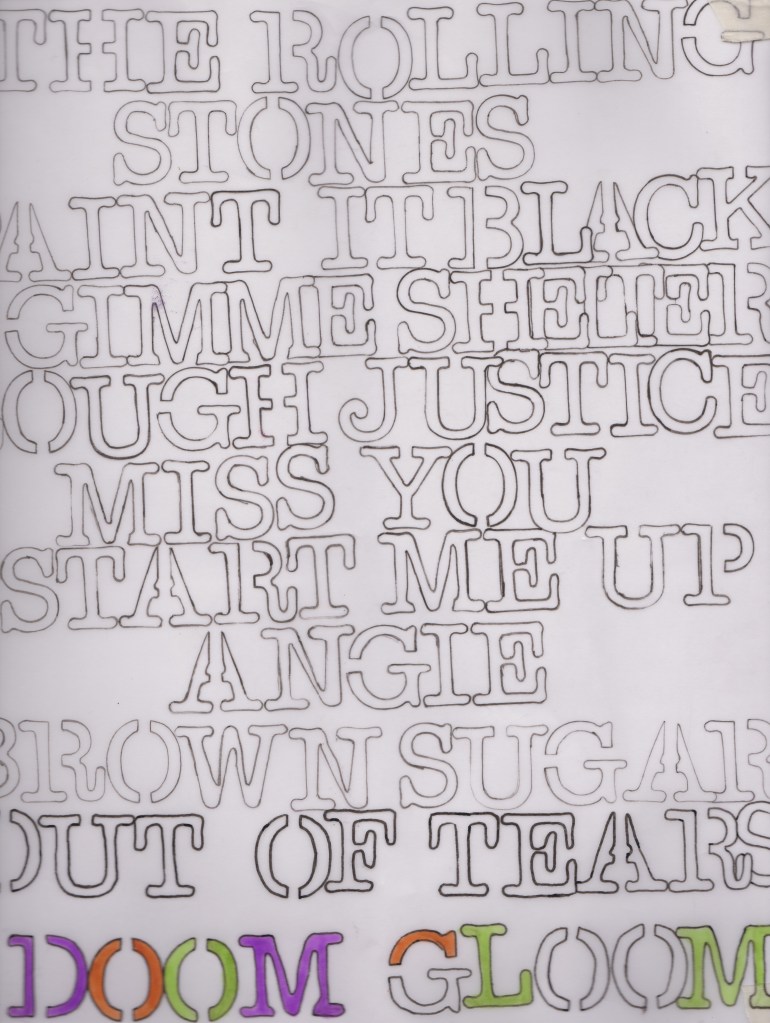 THE ROLLING
STONES
AINT IT BLACK
GIMME SHELTER
OUGH JUSTICE
MISS YOU
START ME UP
ANGIE
BROWN SUGAR
OUT OF TEARS
DOOM GLOOM